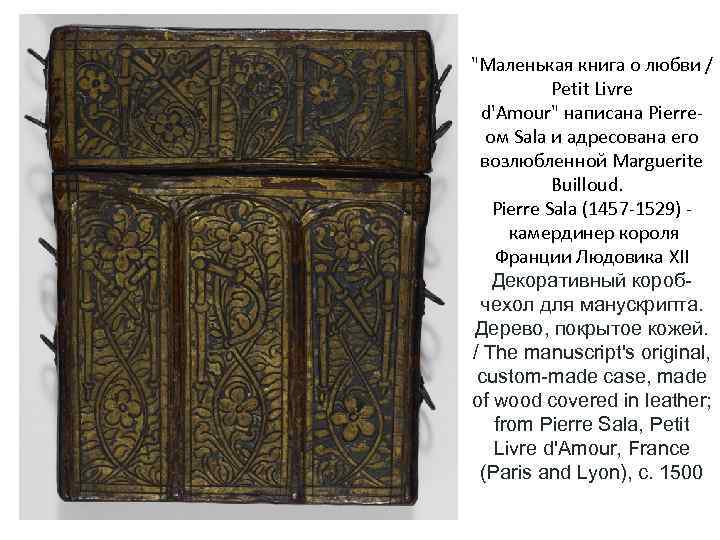 "Маленькая книга о любви /
Petit Livre
d'Amour" написана Pierre-
ом Sala и адресована его
возлюбленной Marguerite
Builloud.
Pierre Sala (1457-1529) -
камердинер короля
Франции Людовика XII
Декоративный короб-
чехол для манускрипта.
Дерево, покрытое кожей.
/ The manuscript's original,
custom-made case, made
of wood covered in leather;
from Pierre Sala, Petit
Livre d'Amour, France
(Paris and Lyon), c. 1500